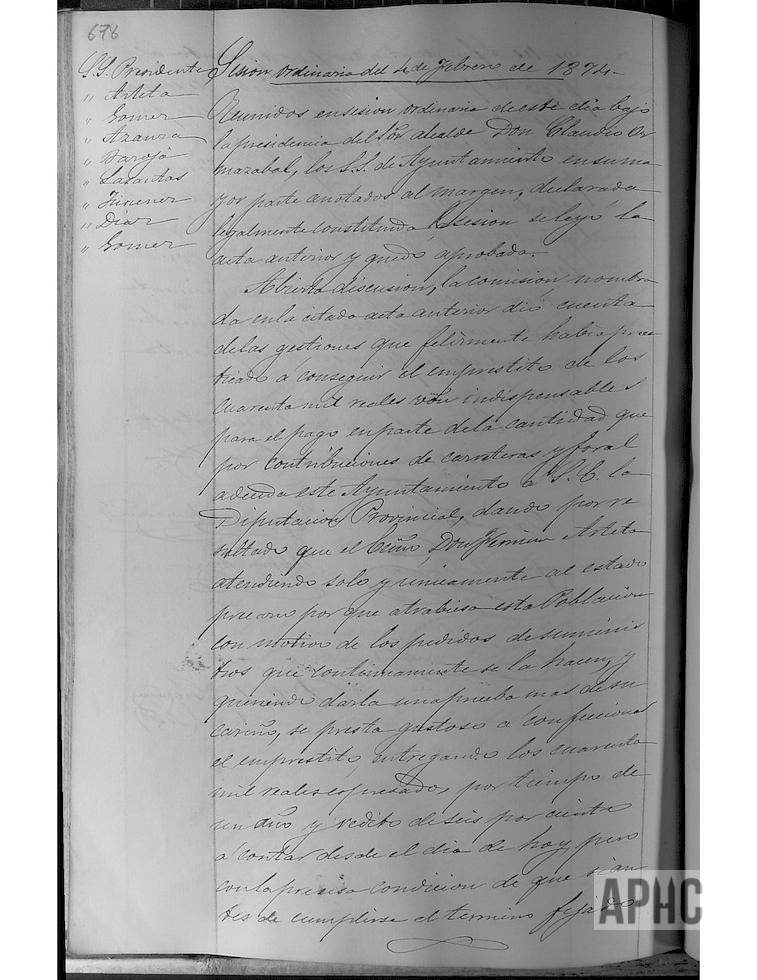 678
S.S. Presidente
" Arteta
" Gomez
" Azanza
" Baroja
" Lasantas
" Jimenez
" Diaz
" Gomez
Sesion ordinaria del 4 de Febrero de 1874-
Reunidos en sesion ordinaria de este dia bajo
la presidencia del Sor alcalde Don Claudio Or
mazabal, los S.S. de Ayuntamiento en su ma
yor parte anotados al margen, declarada
legalmente constituida la sesion se leyó la
acta anterior y quedó aprobada.
Abierta discusion, la comision nombra
da en la citada acta anterior dió cuenta
de las gestiones que felizmente habia prac
ticado a conseguir el emprestito de los
cuarenta mil reales von indispensables
para el pago en parte de la cantidad que
por contribuciones de carreteras y foral
adeuda este Ayuntamiento a S. E. la
Diputacion Provincial, dando por re
sultado que el Don Fermin Arteta
atendiendo solo y unicamente al estado
precario por que atrabiesa esta Poblacion
con motivo de los pedidos de suminis
tros que continuamente se la hacen, y
queriendo darla una prueba mas de su
cariño, se presta gustoso a confeccionar
el emprestito, entregando los cuarenta
mil reales espresados, por tiempo de
un año y redito de seis por ciento
a contar desde el dia de hoy, pero
con la precisa condicion de que si an
tes de cumplirse el termino fijado
APHC